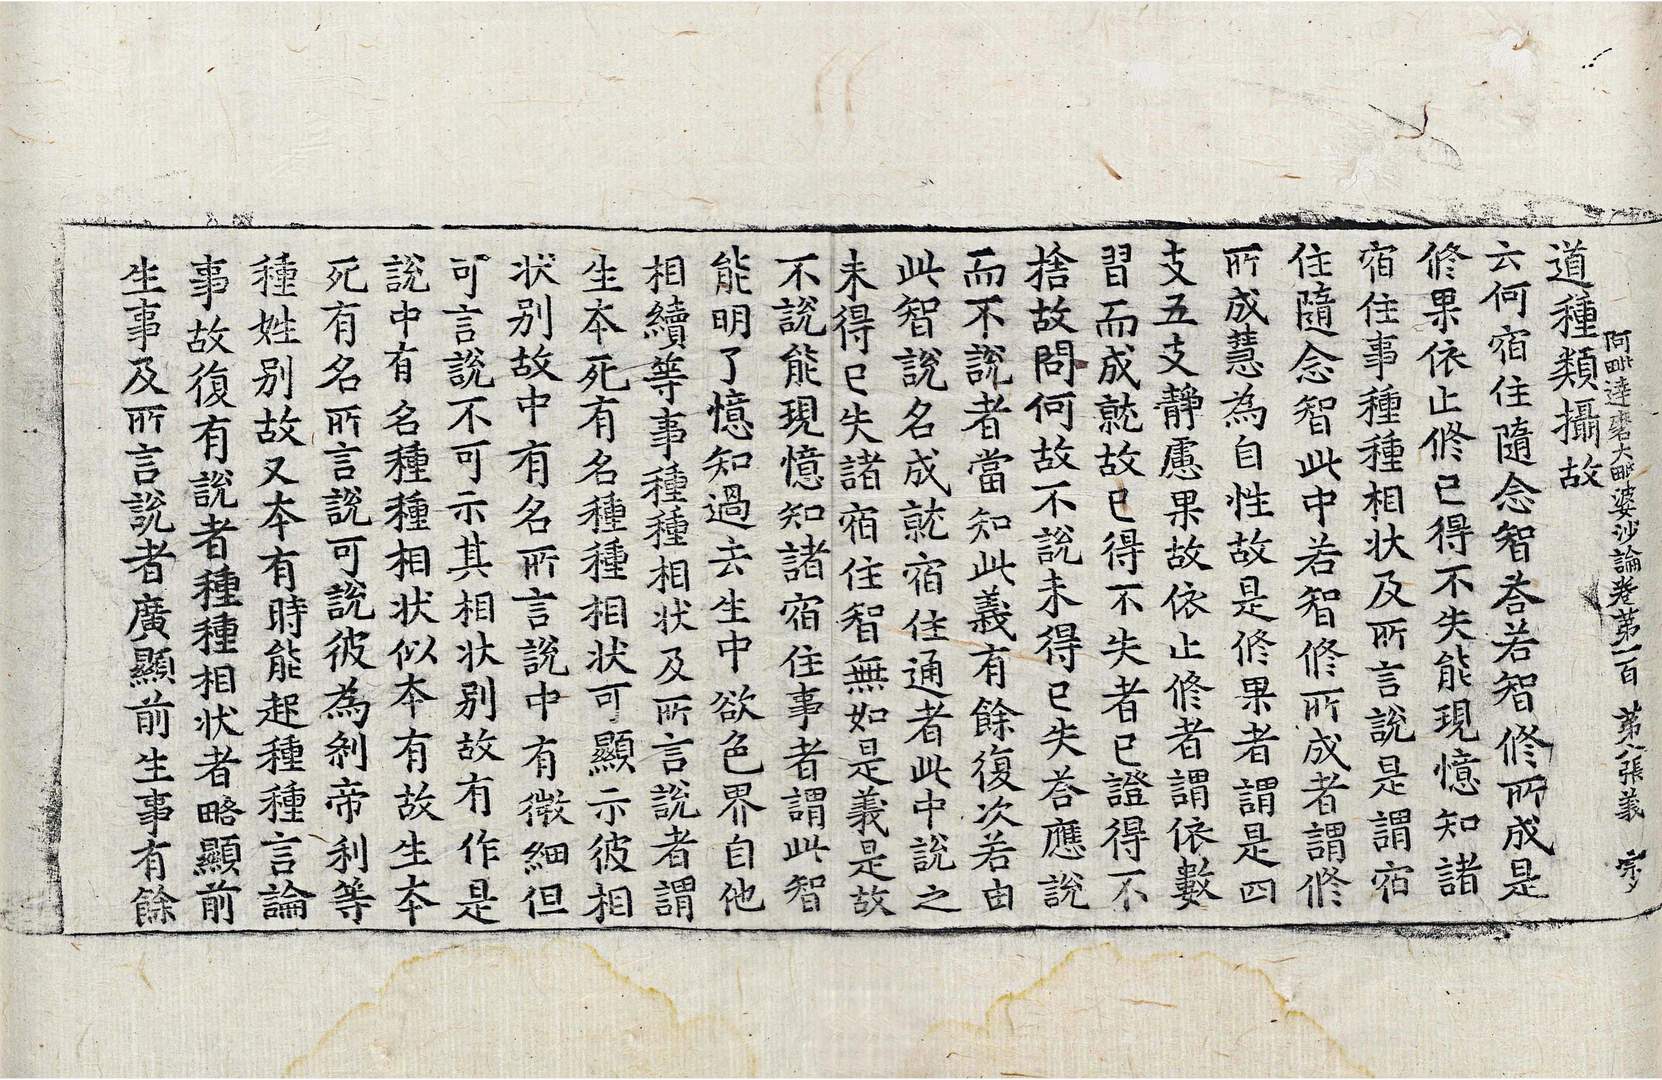 阿毗達磨大毗婆沙論卷第一百 第八張 義 宗夕
道種類攝故
云何宿住隨念智荅若智修所成是
修果依止修已得不失能現憶知諸
宿住事種種相狀及所言說是謂宿
住隨念智此中若智修所成者謂修
所成慧為自性故是修果者謂是四
支五支靜慮果故依止修者謂依數
習而成就故已得不失者已證得不
捨故問何故不說未得已失荅應說
而不說者當知此義有餘復次若由
此智說名成就宿住通者此中說之
未得已失諸宿住智無如是義是故
不說能現憶知諸宿住事者謂此智
能明了憶知過去生中欲色界自他
相續等事種種相狀及所言說者謂
生本死有名種種相狀可顯示彼相
狀別故中有名所言說中有微細但
可言說不可示其相狀別故有作是
說中有名種種相狀似本有故生本
死有名所言說可說彼為剎帝利等
種姓別故又本有時能起種種言論
事故復有說者種種相狀者略顯前
生事及所言說者廣顯前生事有餘